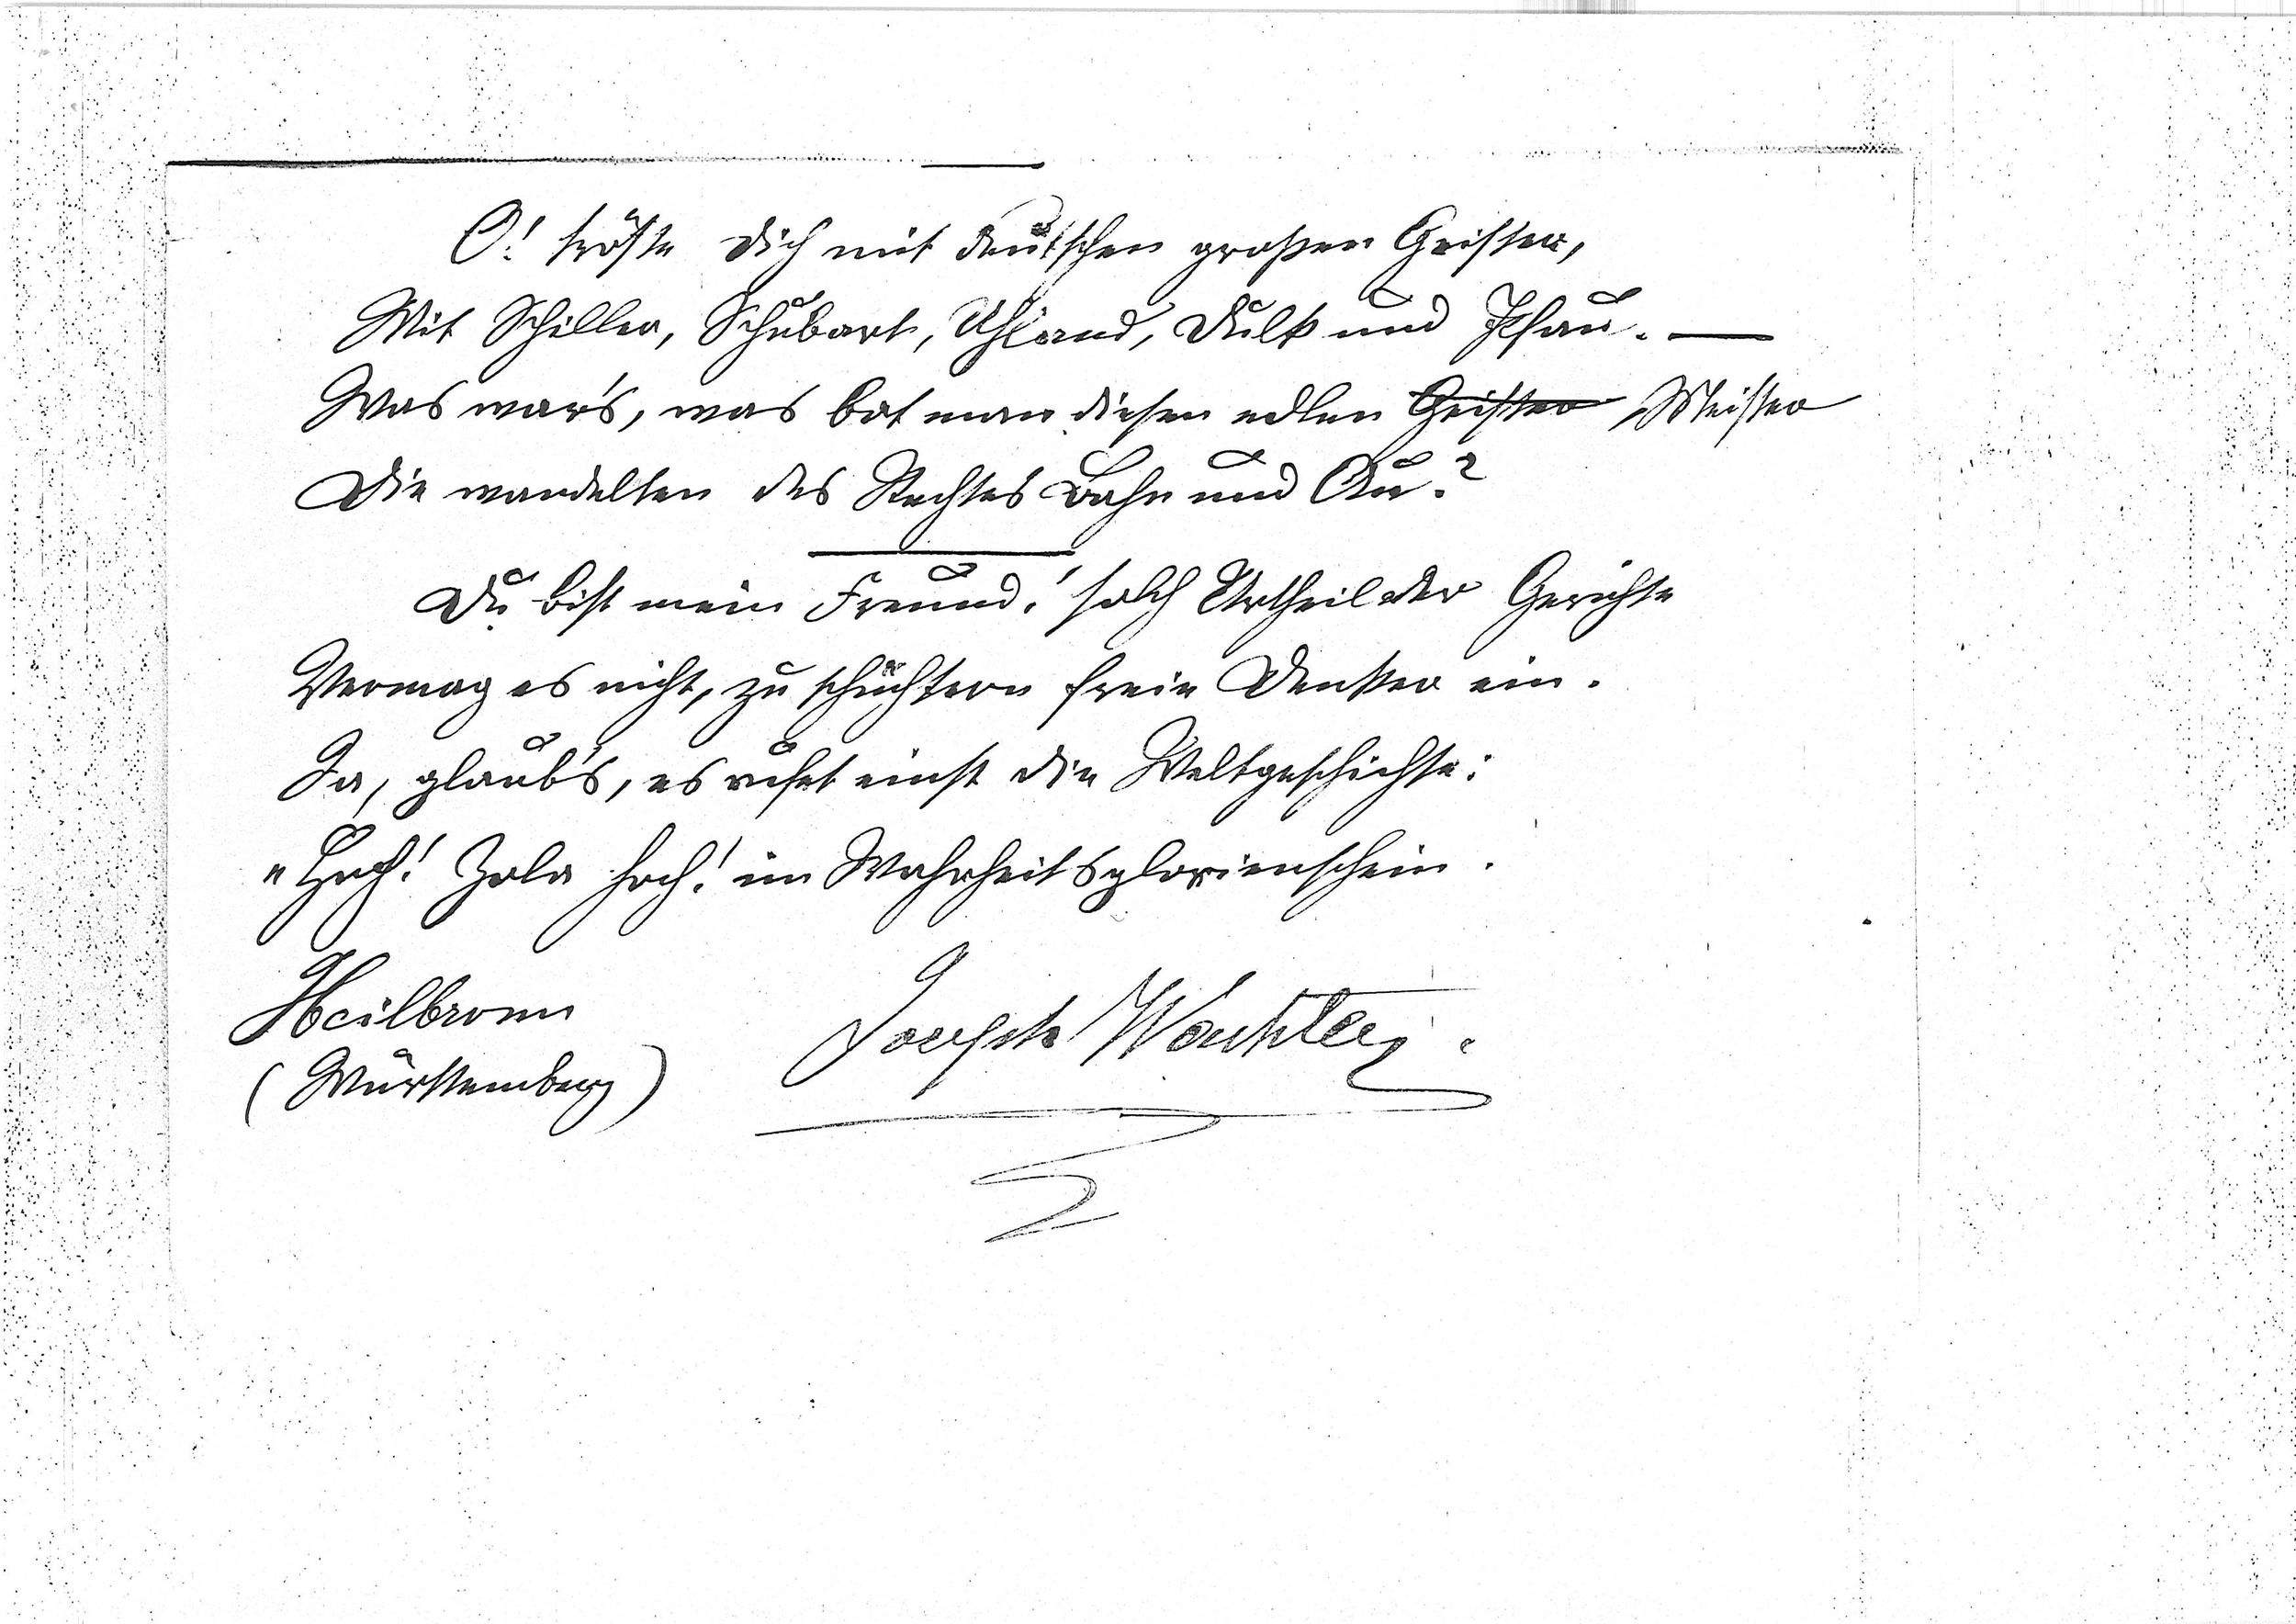 O! tröste Dich mit deutschen großen Geister,
Mit Schiller, Schubart, Uhland, Dulk und Pfau. —
Was war's, was bot man diesen edlen Geister Meister
Die wandelten des Rechtes Bahn und Au?
Du bist mein Freund! solch Urtheil der Gerichte
Vermag es nicht, zu schüchtern freie Denker ein.
Ja, glaub's, es ruft einst die Weltgeschichte:
"Hoch! Zola hoch! im Wahrheitsglorienschein.
Heilbronn
(Württemberg)
Joseph